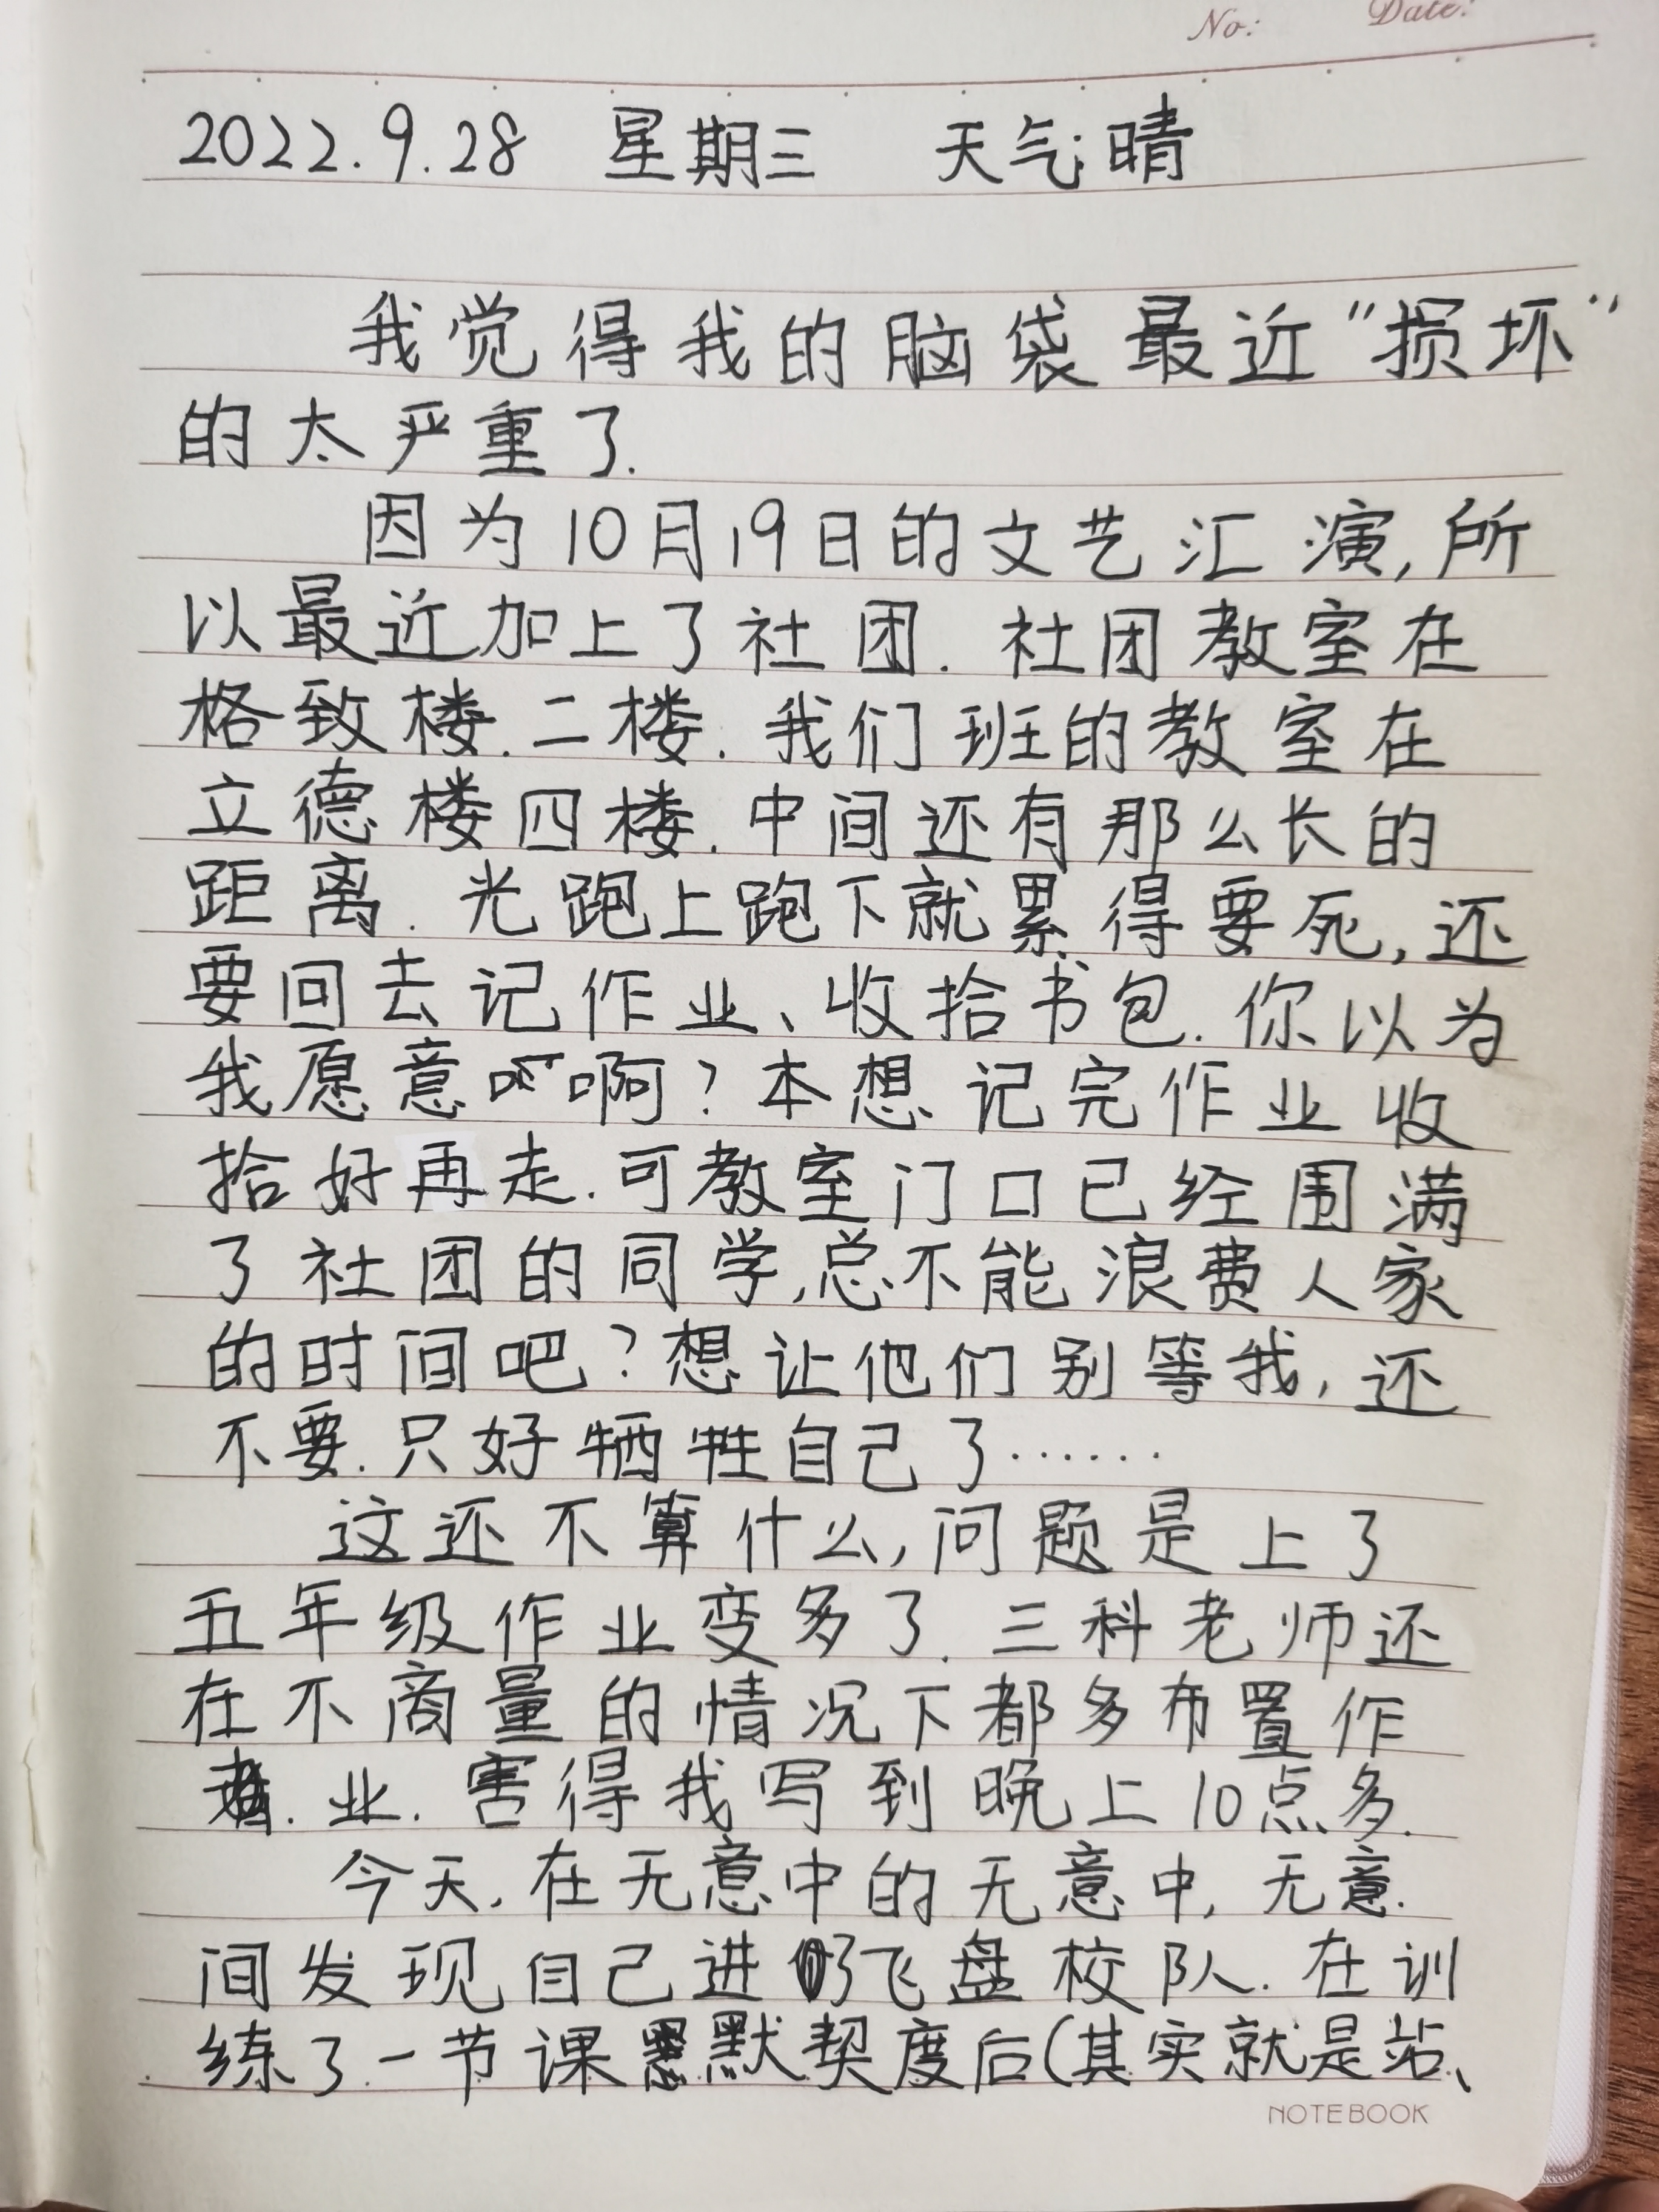 No: Date:
2022.9.28 星期三 天气:晴
我觉得我的脑袋最近"损坏"
的太严重了.
因为10月19日的文艺汇演,所
以最近加上了社团.社团教室在
格致楼.二楼.我们班的教室在
立德楼四楼.中间还有那么长的
距离.光跑上跑下就累得要死,还
要回去记作业、收拾书包.你以为
我愿意啊?本想记完作业收
拾好再走.可教室门口已经围满
了社团的同学,总不能浪费人家
的时间吧?想让他们别等我,还
不要.只好牺牲自己了……
这还不算什么,问题是上了
五年级作业变多了.三科老师还
在不商量的情况下都多布置作
业.害得我写到晚上10点多.
今天,在无意中的无意中,无意.
间发现自己进了飞盘校队.在训
练了一节课默契度后(其实就是站、
NOTEBOOK